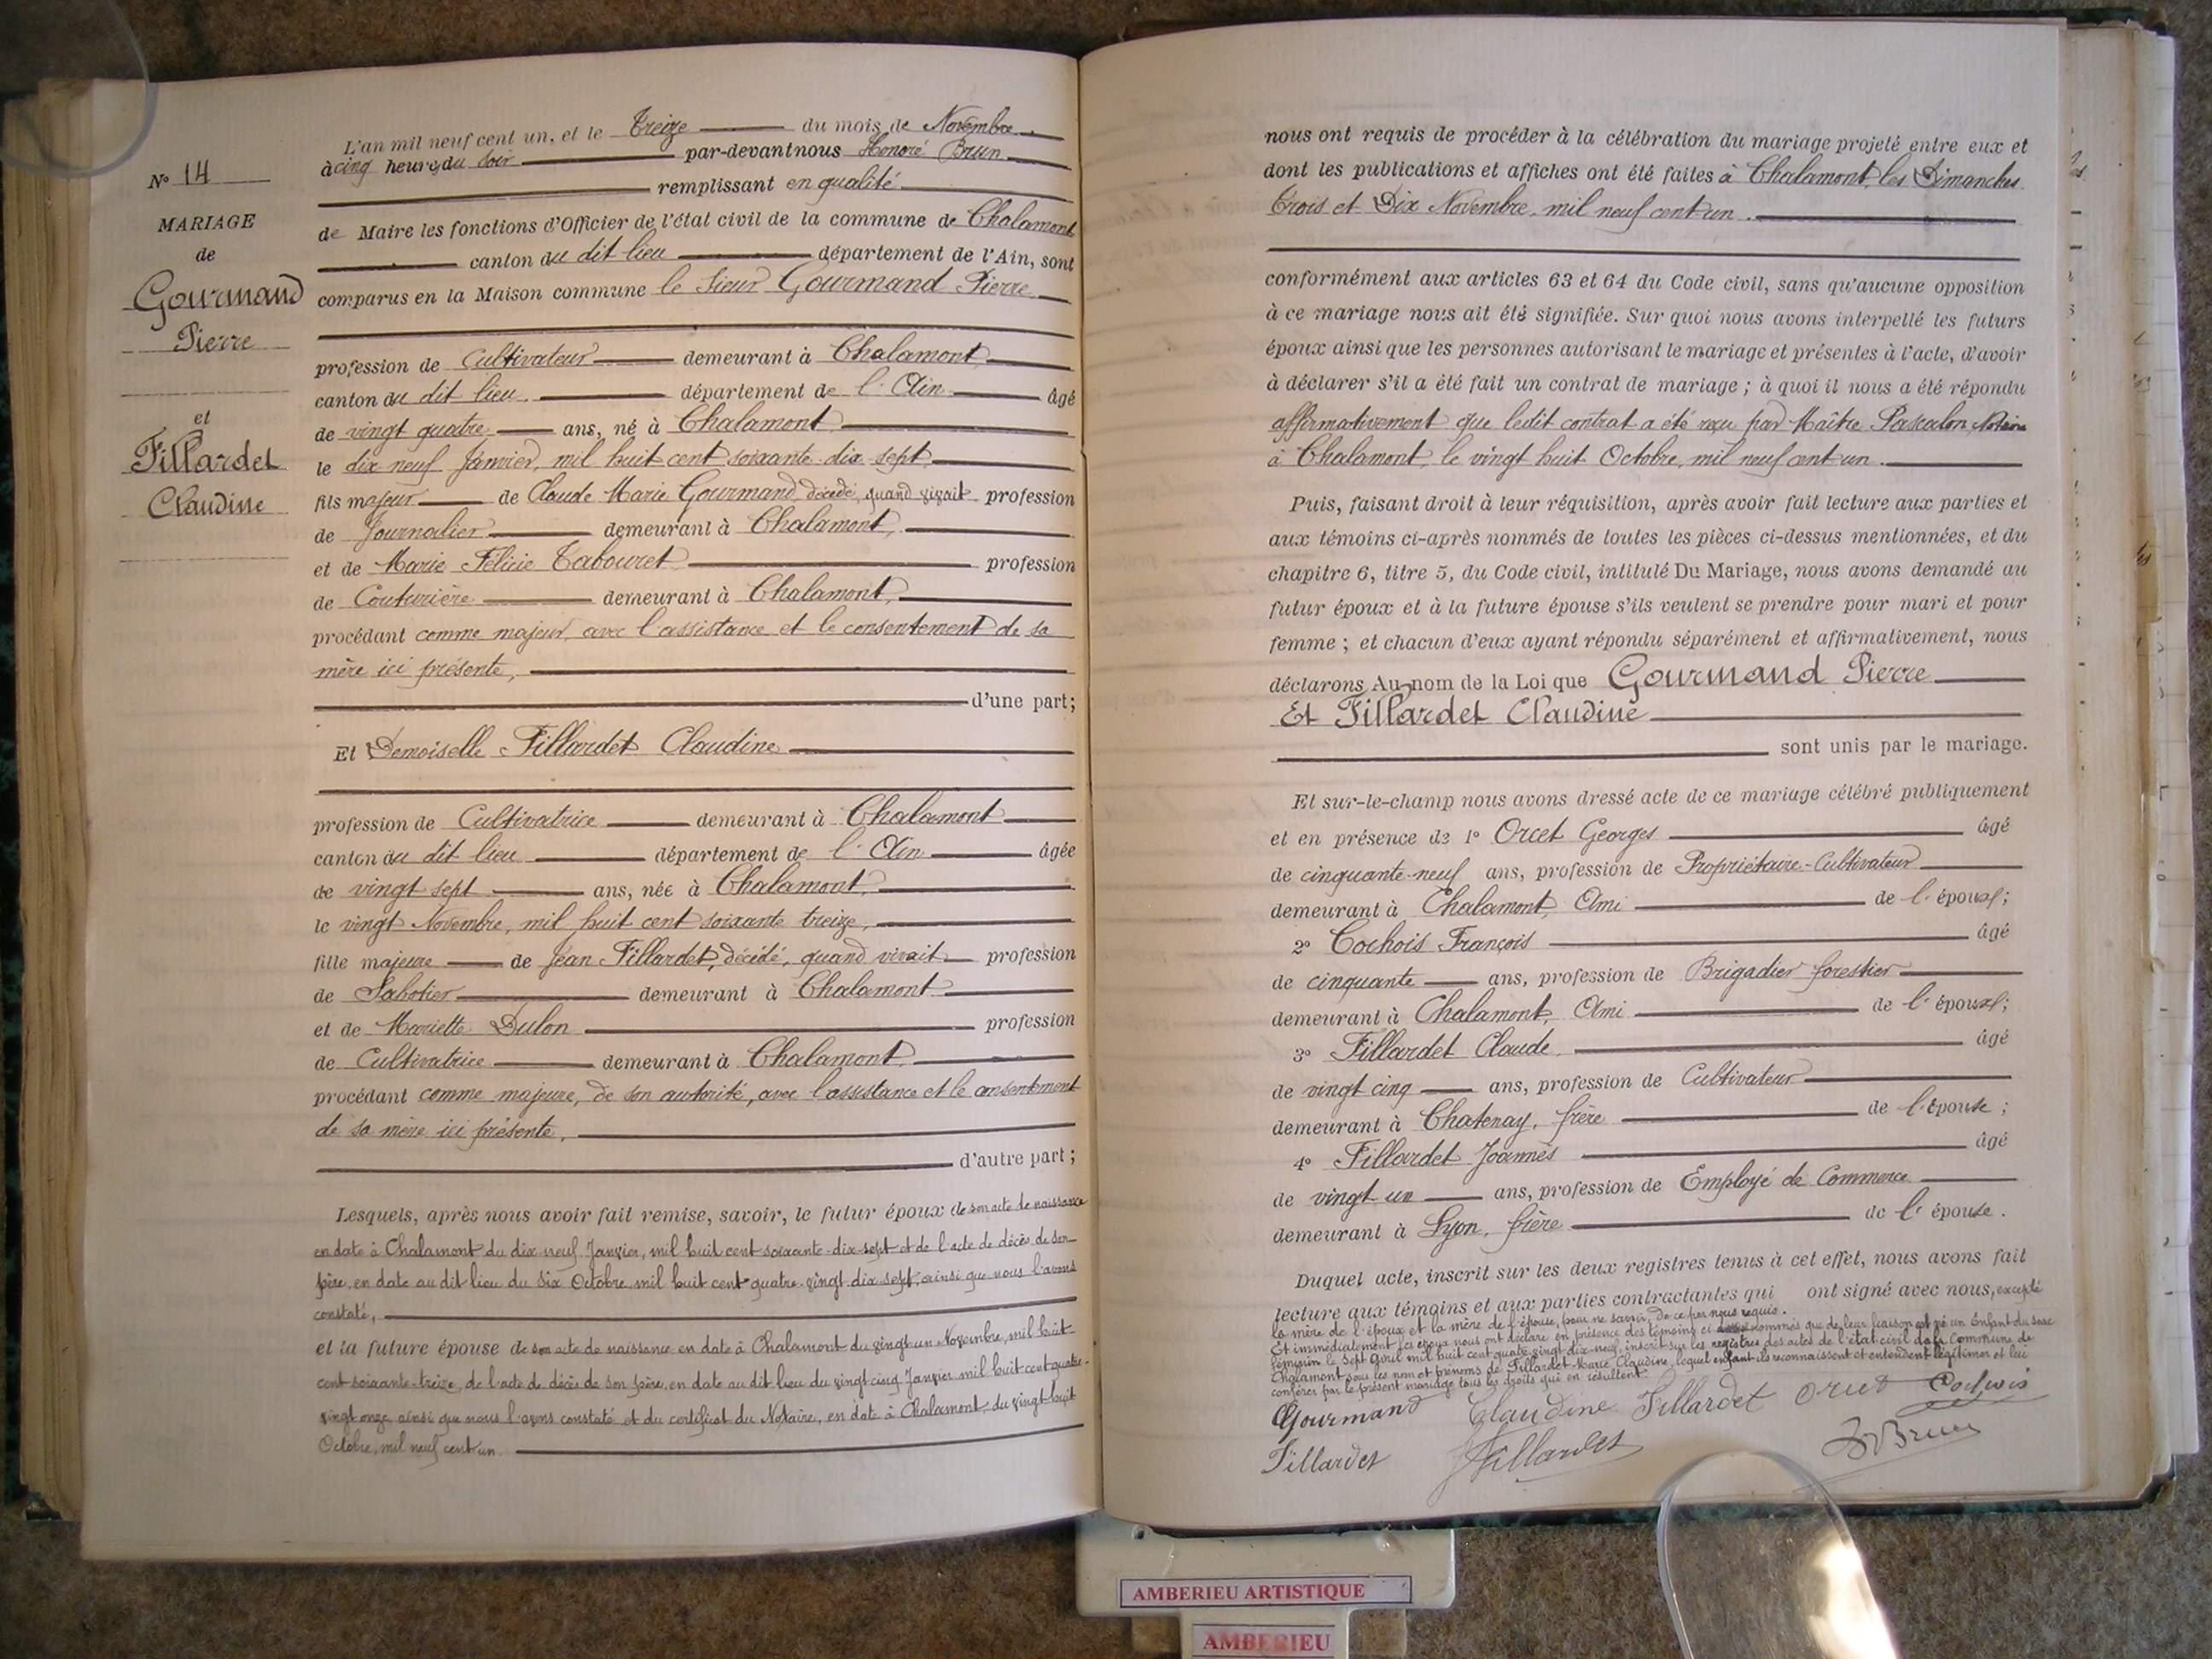 N° 14
MARIAGE
de
Gourmand
Pierre
et
Fillardet
Claudine
L'an mil neuf cent un, et le Treize du mois de Novembre
à cinq heures du soir par-devant nous Honoré Brun
remplissant en qualité
de Maire les fonctions d'Officier de l'état civil de la commune de Chalamont
canton du dit lieu département de l'Ain, sont
comparus en la Maison commune le Sieur Gourmand Pierre
profession de Cultivateur demeurant à Chalamont
canton du dit lieu département de l'Ain âgé
de vingt quatre ans, né à Chalamont
le dix neuf Janvier, mil huit cent soixante dix sept
fils majeur de Claude Marie Gourmand, décédé, quand vivait profession
de Journalier demeurant à Chalamont,
et de Marie Félicie Tabouret profession
de Couturière demeurant à Chalamont,
procédant comme majeur, avec l'assistance et le consentement de sa
mère ici présente,
d'une part;
Et Demoiselle Fillardet Claudine
profession de Cultivatrice demeurant à Chalamont
canton du dit lieu département de l'Ain âgée
de vingt sept ans, née à Chalamont,
le vingt Novembre, mil huit cent soixante treize,
fille majeure de Jean Fillardet, décédé, quand vivait profession
de Sabotier demeurant à Chalamont
et de Mariette Dulon profession
de Cultivatrice demeurant à Chalamont,
procédant comme majeure, de son autorité, avec l'assistance et le consentement
de sa mère ici présente,
d'autre part;
Lesquels, après nous avoir fait remise, savoir, le futur époux de son acte de naissance
en date à Chalamont du dix neuf Janvier, mil huit cent soixante-dix-sept et de l'acte de décès de son
père, en date au dit lieu du Six Octobre mil huit cent quatre-vingt dix sept, ainsi que nous l'avons
constaté,
et la future épouse de son acte de naissance en date à Chalamont du vingt un Novembre, mil huit
cent soixante-treize, de l'acte de décès de son père, en date au dit lieu du vingt cinq Janvier mil huit cent quatre-
vingt onze, ainsi que nous l'avons constaté et du certificat du Notaire, en date à Chalamont, du vingt huit
Octobre, mil neuf cent un
nous ont requis de procéder à la célébration du mariage projeté entre eux et
dont les publications et affiches ont été faites à Chalamont, les Dimanches
Trois et Dix Novembre, mil neuf cent un.
conformément aux articles 63 et 64 du Code civil, sans qu'aucune opposition
à ce mariage nous ait été signifiée. Sur quoi nous avons interpellé les futurs
époux ainsi que les personnes autorisant le mariage et présentes à l'acte, d'avoir
à déclarer s'il a été fait un contrat de mariage; à quoi il nous a été répondu
affirmativement que ledit contrat a été reçu par Maître Pascalon, Notaire
à Chalamont, le vingt huit Octobre, mil neuf cent un.
Puis, faisant droit à leur réquisition, après avoir fait lecture aux parties et
aux témoins ci-après nommés de toutes les pièces ci-dessus mentionnées, et du
chapitre 6, titre 5, du Code civil, intitulé Du Mariage, nous avons demandé au
futur époux et à la future épouse s'ils veulent se prendre pour mari et pour
femme; et chacun d'eux ayant répondu séparément et affirmativement, nous
déclarons Au nom de la Loi que Gourmand Pierre
Et Fillardet Claudine
sont unis par le mariage.
Et sur-le-champ nous avons dressé acte de ce mariage célébré publiquement
et en présence de 1° Orcet Georges âgé
de cinquante-neuf ans, profession de Propriétaire-Cultivateur
demeurant à Chalamont, Ami de l'époux;
2° Cochois François âgé
de cinquante ans, profession de Brigadier forestier
demeurant à Chalamont, Ami de l'époux;
3° Fillardet Claude âgé
de vingt cinq ans, profession de Cultivateur
demeurant à Chatenay, frère de l'épouse;
4° Fillardet Joannès âgé
de vingt un ans, profession de Employé de Commerce
demeurant à Lyon, frère de l'épouse.
Duquel acte, inscrit sur les deux registres tenus à cet effet, nous avons fait
lecture aux témoins et aux parties contractantes qui ont signé avec nous, excepté
la mère de l'époux et la mère de l'épouse, pour ne savoir, de ce par nous requis.
Et immédiatement les époux nous ont déclaré en présence des témoins ci nommés que de leur liaison est né un Enfant du sexe
féminin le Sept Avril mil huit cent quatre vingt dix-neuf, inscrit sur les registres des actes de l'état-civil de la Commune de
Chalamont sous les nom et prénoms de Fillardet Marie Claudine, lequel enfant ils reconnaissent et entendent légitimer et lui
conférer par le présent mariage tous les droits qui en résultent.
Gourmand Claudine Fillardet Orcet Cochois
Fillardet JFillardet HBrun
AMBERIEU ARTISTIQUE
AMBERIEU